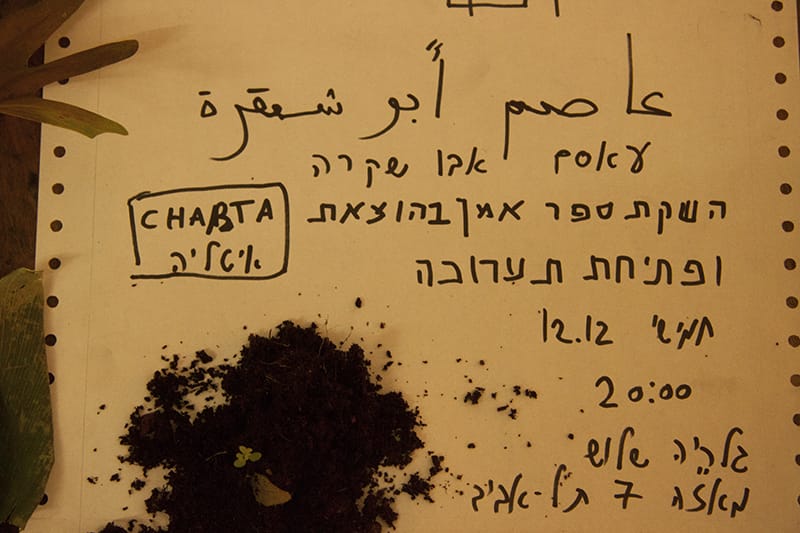 عاصم أبو شقرة
עאסם אבו שקרה
השקת ספר אמן בהוצאת
CHARTA
איטליה
ופתיחת תערוכה
חמישי 12.12
20:00
גלריה שלוש
מאזה 7 תל-אביב